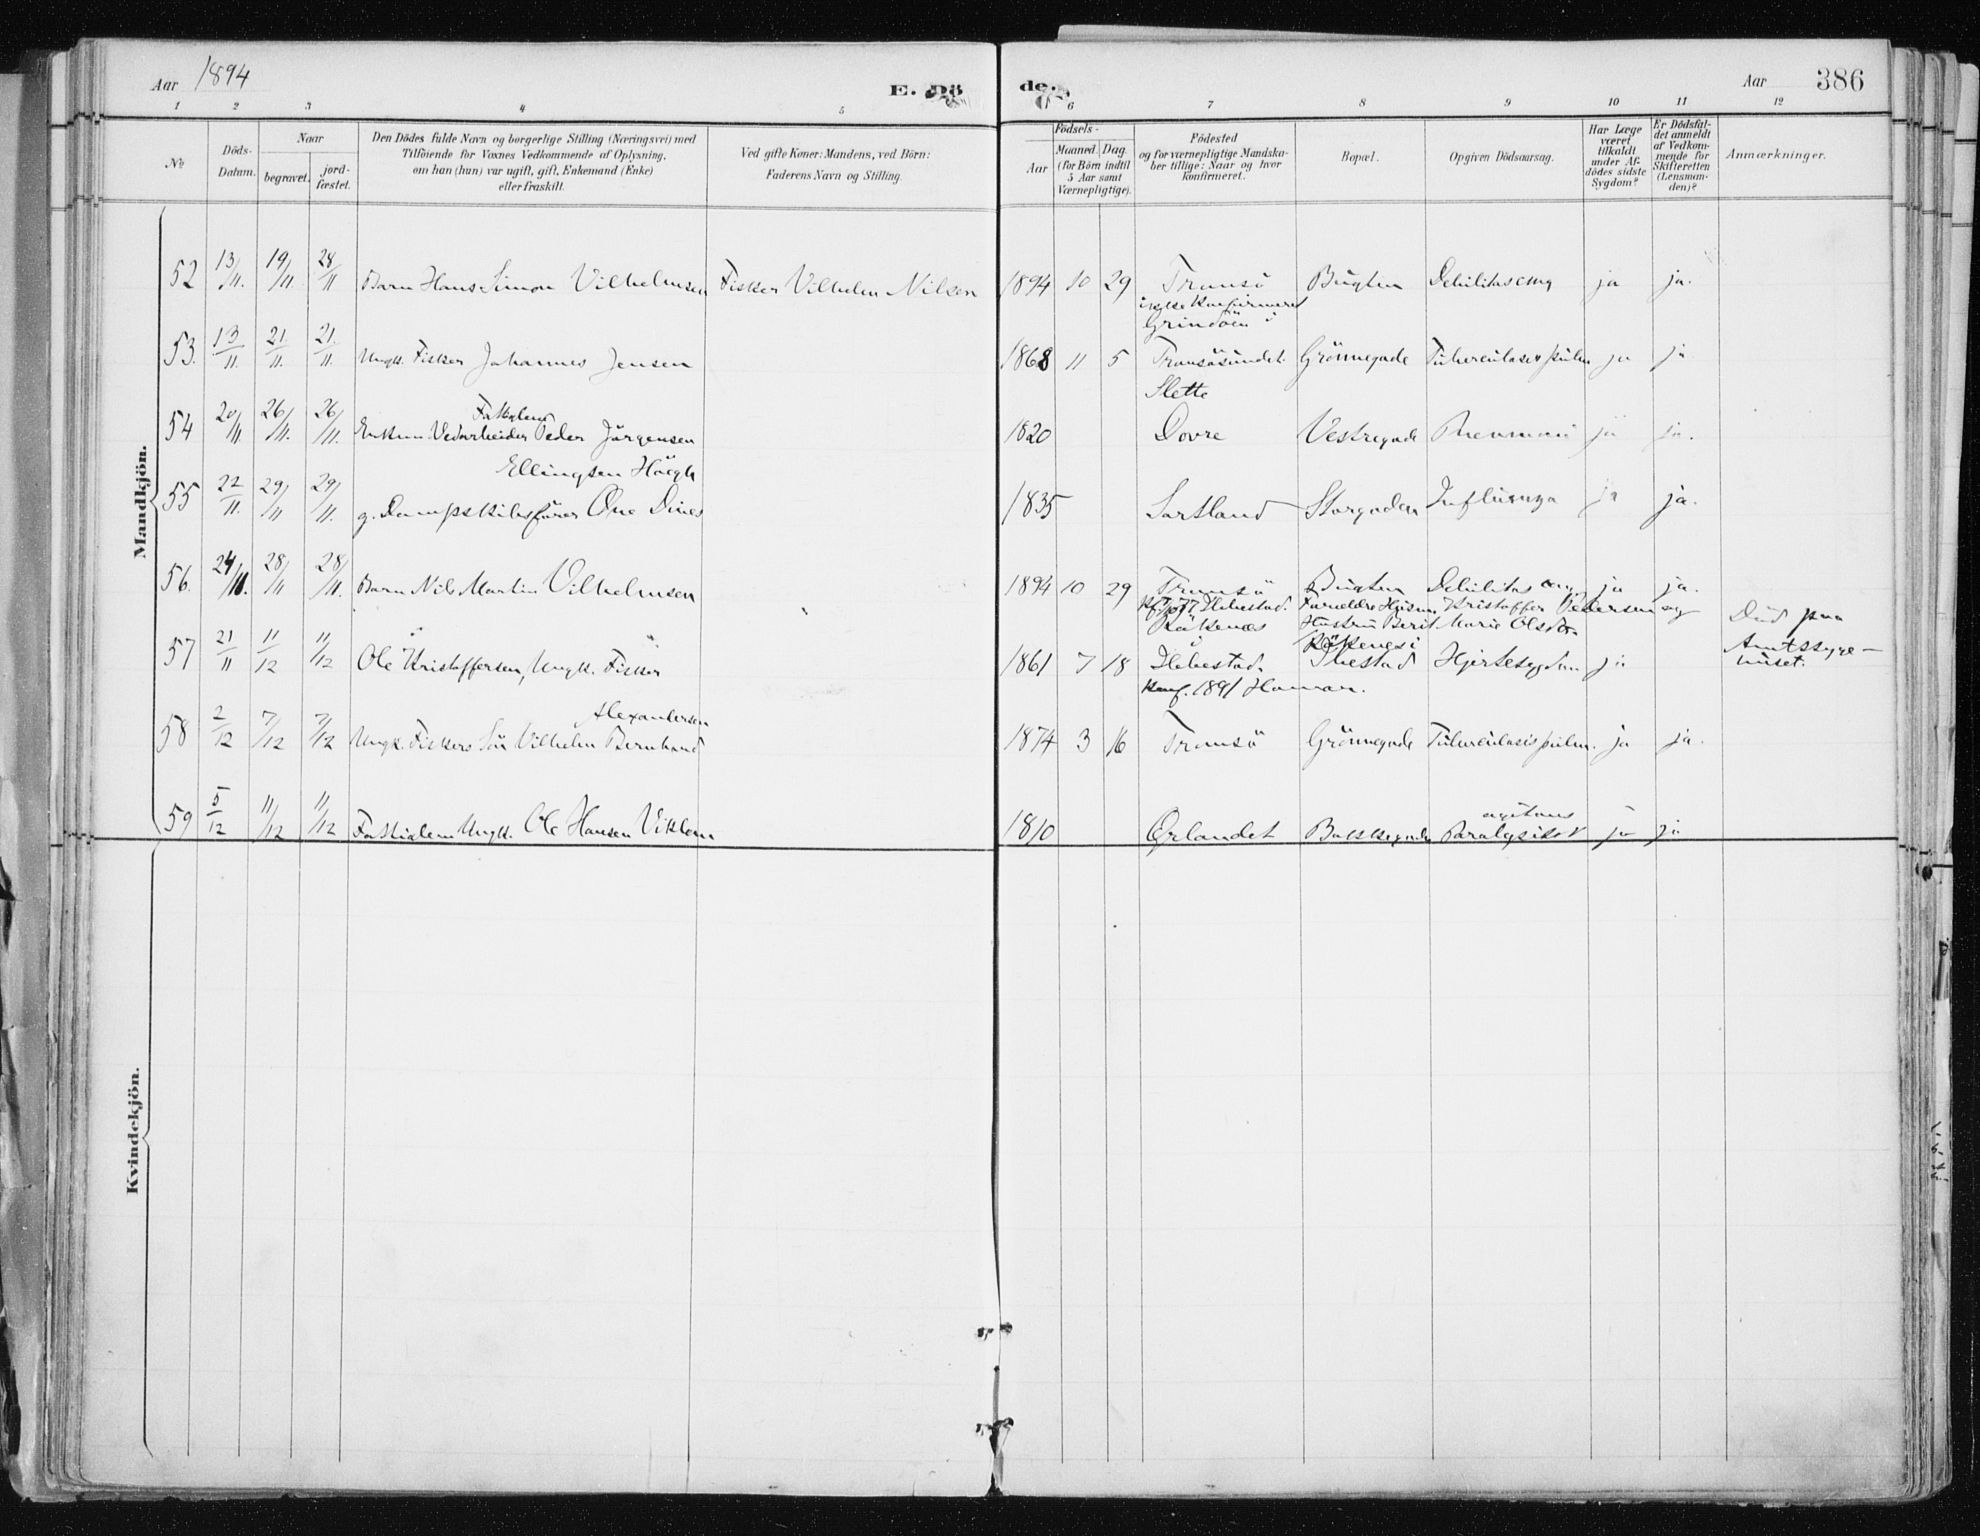 Aar 1894
E. Dö de. Aar 386
1 2 3 4 5 6 7 8 9 10 11 12
No
Döds-Datum.
Naar
begravet.
jord-fæstet.
Den Dödes fulde Navn og borgerlige Stilling (Næringsvei) med
Tilföiende for Voxnes Vedkommende af Oplysning,
om han (hun) var ugift, gift, Enkemand (Enke)
eller fraskilt.
Ved gifte Koner: Mandens, ved Börn:
Faderens Navn og Stilling.
Födsels-
Aar
Maaned. Dag.
(for Börn indtil
5 Aar samt
Værnepligtige).
Födested
og for værnepligtige Mandska-
ber tillige: Naar og hvor
konfirmeret.
Bopæl.
Opgiven Dödsaarsag.
Har Læge
været
tilkaldt
under Af-
dödes sidste
Sygdom?
Er Dödsfal-
det anmeldt
af Vedkom-
mende for
Skifteretten
(Lensman-
den)?
Anmærkninger.
Mandkjön.
52 13/11. 19/11. 28/11 Barn Hans Simon Vilhelmsen Fisker Vilhelm Nilsen 1894 10 29 Tromsö Bugten Debilitas cong ja ja.
ikke konfirmeret
Grindöen i
53. 13/11. 21/11. 21/11. Ungk. Fisker Johannes Jensen 1868 11 5 Tromsösundet. Grönnegade Tuberculosis pulm ja ja
Slette
Fattiglem
54 20/11. 26/11. 26/11. Enkem. Vedarbeider Peder Jörgensen 1820 Dovre Vestregade Pneumoni ja ja.
Ellingsen Höegh
55 22/11. 29/11 29/11. g. Dampskibsförer Ove Dines 1835 Sortland Storgaden Influenza ja ja.
56. 24/11. 28/11 28/11. Barn Nils Martin Vilhelmsen 1894 10 29 Tromsö Bugten Debilitas cong. ja ja.
Ibbestad. Forældre Kristoffer Pedersen og
Hustru Berit Marie Olsdtr
57 21/11 11/12 11/12 Ole Kristoffersen, Ungk. Fisker 1861 7 18 Ibbestad. Ibestad Hjertesygdom ja Död paa
Amtssyge-
huset.
Konf. 1891
Alexandersen
58 2/12 7/12 7/12 Ungk. Fiskers Sön Vilhelm Bernhard 1874 3 16 Tromsö Grönnegade Tuberculosis pulm. ja ja.
agitans
59 5/12 11/12 11/12 Fattiglem Ungk. Ole Hansen 1810 Ørlandet Bakkegaden Paralysis ja ja
Kvindekjön.